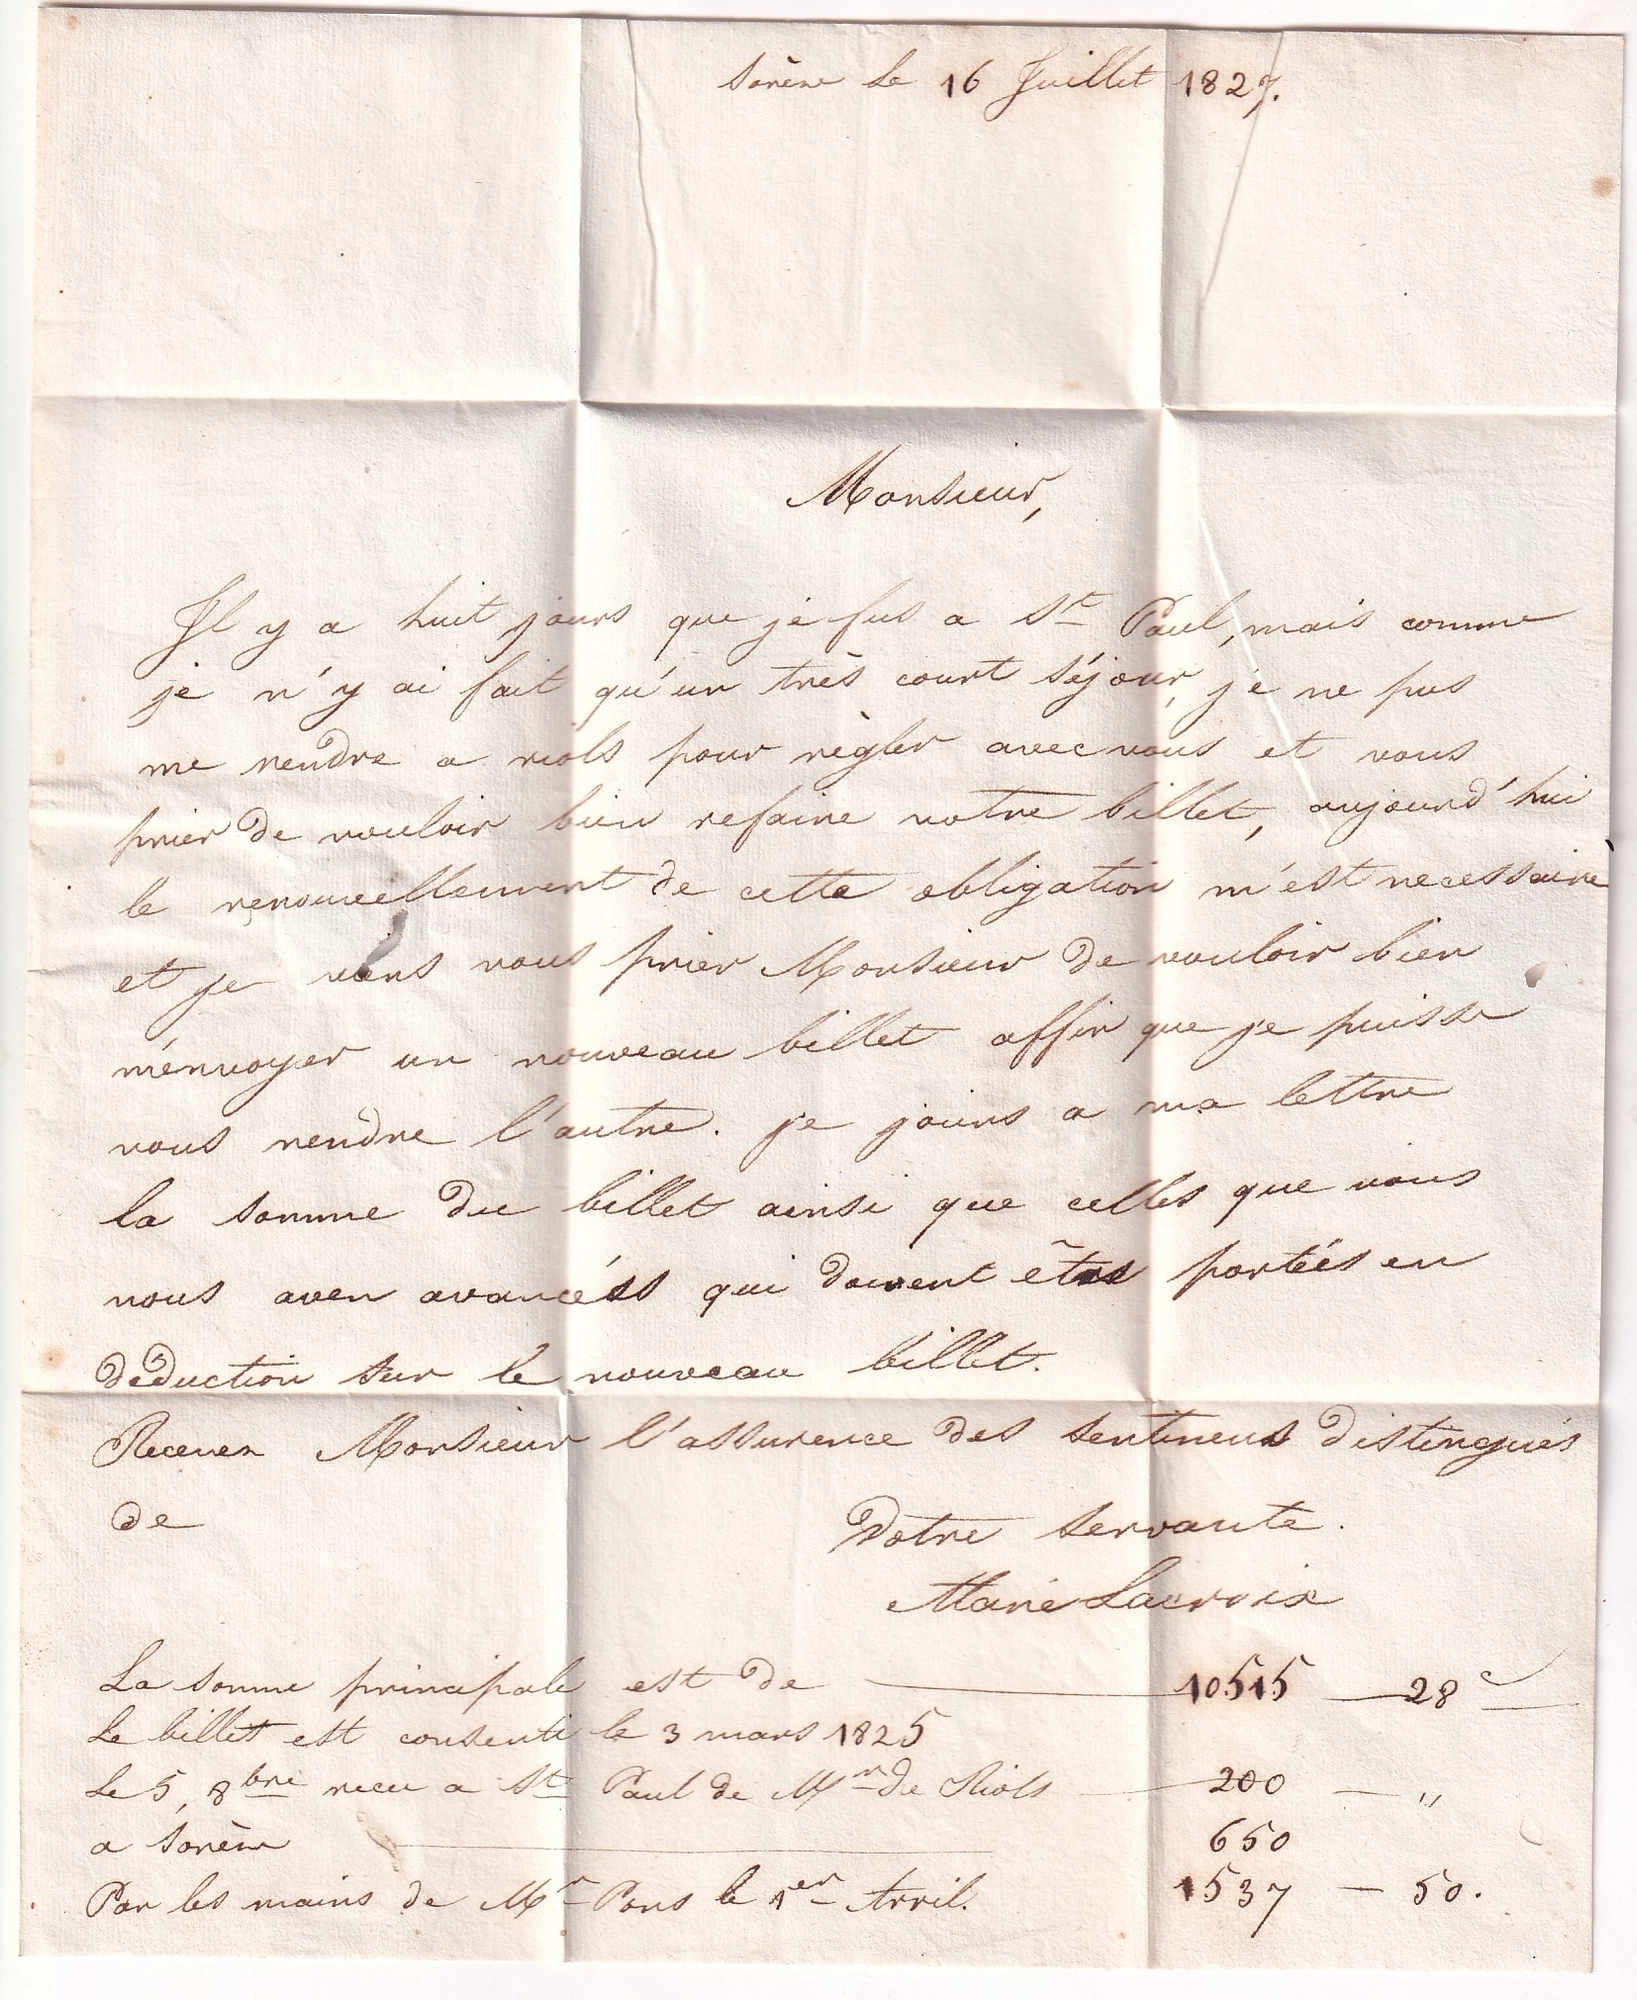 Sorèze le 16 Juillet 1827.
Monsieur,
Il y a huit jours que je fus a St Paul, mais comme
je n'y ai fait qu'un très court séjour, je ne pus
me rendre a riols pour règler avec vous et vous
prier de vouloir bien refaire notre billet, aujourd'hui
le renouvellement de cette obligation m'est necessaire
et je viens vous prier Monsieur de vouloir bien
m'envoyer un nouveau billet affin que je puisse
vous rendre l'autre. je joins a ma lettre
la somme du billet ainsi que celles que vous
nous aven avancéss qui doivent êtres portéés en
déduction sur le nouveau billet.
Recever Monsieur l'assurence des sentimens distingués
de
Votre servante.
Marie Lacroix
La somme principale est de 10515 — 28 c
Le billet est consenti le 3 mars 1825
Le 5, 8bre recu a St Paul de Mr de Riols — 200 — "
a Sorèze 650
Par les mains de Mr Pons le 1er Avril. 1537 — 50.